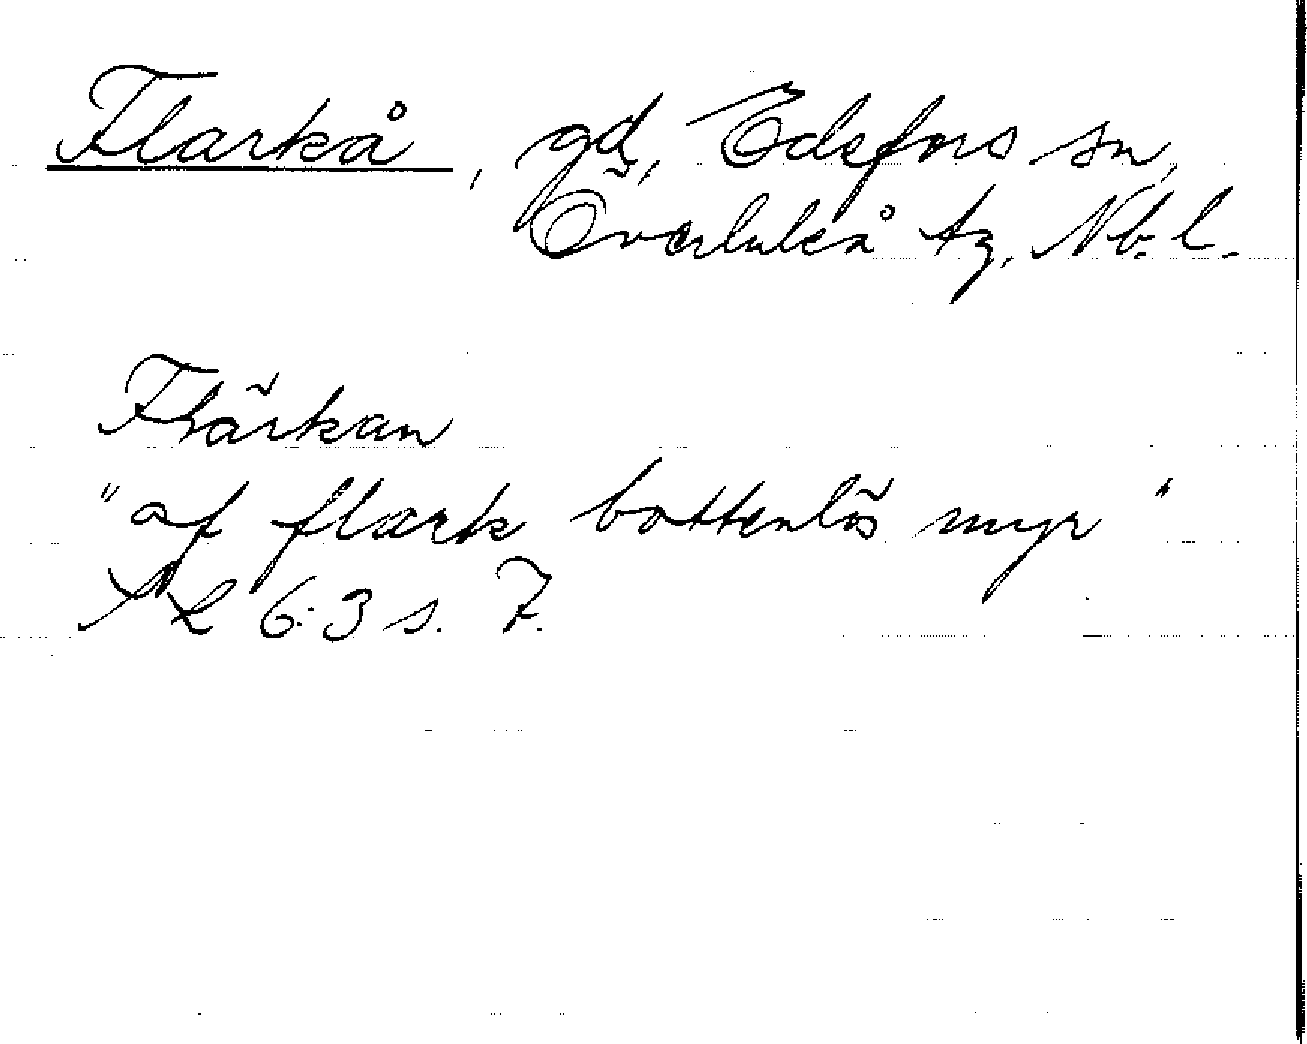 Flarkå, gd, Edefors sn,
Överluleå tg, Nb. l.
Flärkan
"af flark bottenlös myr"
SL 6:3 s. 7.